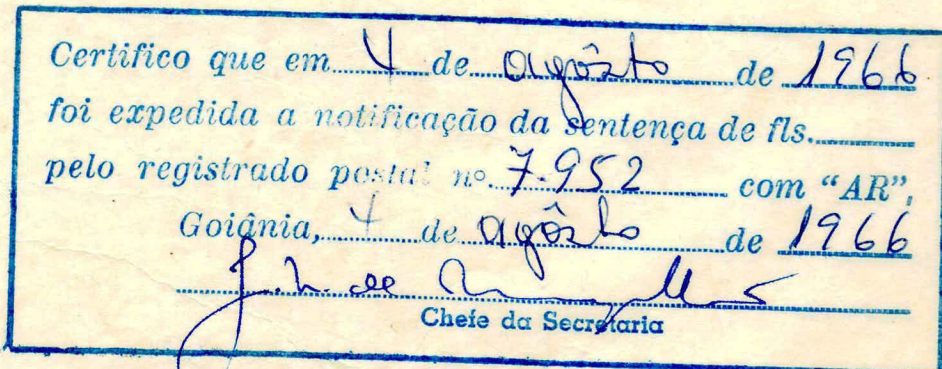 Certifico que em 4 de agôsto de 1966
foi expedida a notificação da sentença de fls.
pelo registrado postal nº 7.952 com "AR".
Goiânia, 4 de agôsto de 1966
J. N. de
Chefe da Secretaria